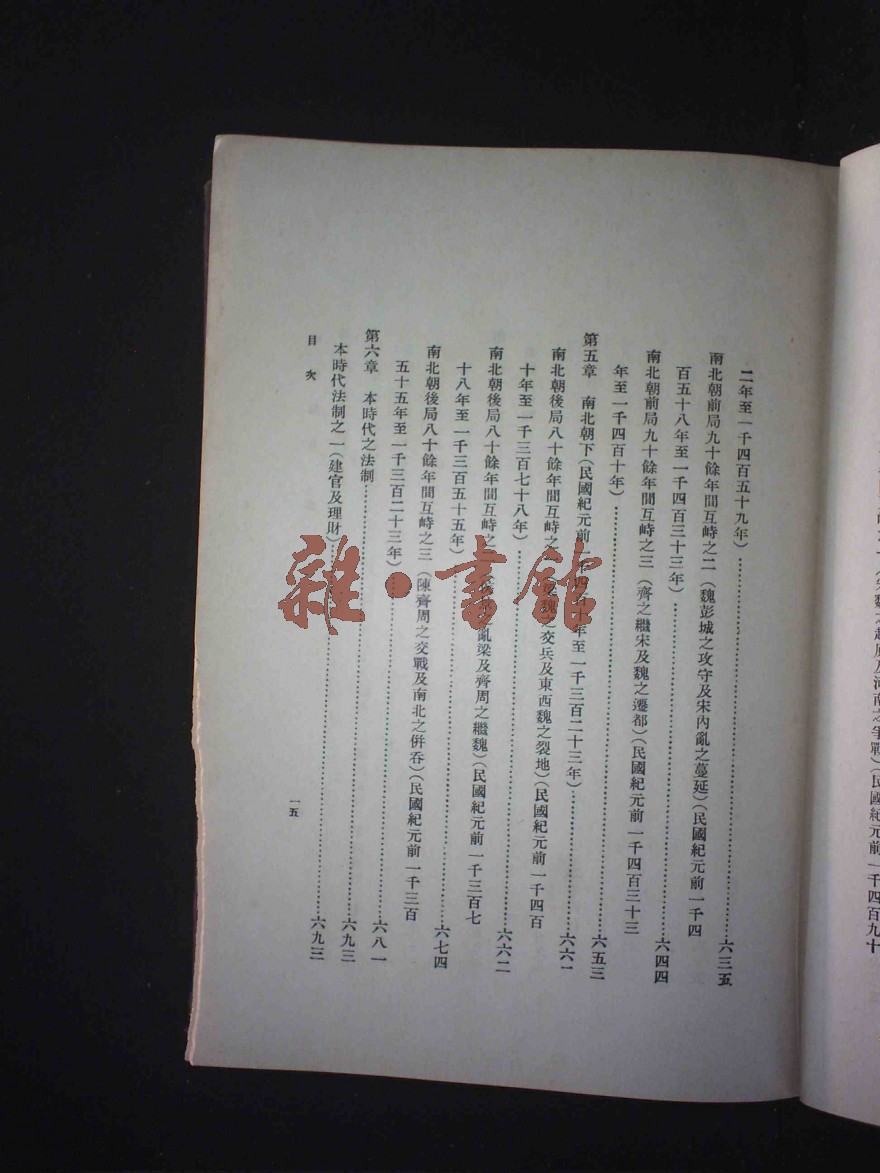 之爭戰)(民國紀元前一千四百九十
二年至一千四百五十九年)……六三五
南北朝前局九十餘年間互峙之二(魏彭城之攻守及宋內亂之蔓延)(民國紀元前一千四
百五十八年至一千四百三十三年)……六四四
南北朝前局九十餘年間互峙之三(齊之繼宋及魏之遷都)(民國紀元前一千四百三十三
年至一千四百十年)……六五三
第五章 南北朝下(民國紀元前 千四百十年至一千三百二十三年)……六六一
南北朝後局八十餘年間互峙之 魏之交兵及東西魏之裂地)(民國紀元前一千四百
十年至一千三百七十八年)……六六二
南北朝後局八十餘年間互峙之 亂梁及齊周之繼魏)(民國紀元前一千三百七
十八年至一千三百五十五年)……六七四
南北朝後局八十餘年間互峙之三(陳齊周之交戰及南北之併吞)(民國紀元前一千三百
五十五年至一千三百二十三年)……六八一
第六章 本時代之法制……六九三
本時代法制之一(建官及理財)……六九三
目次
一五
雜·書館